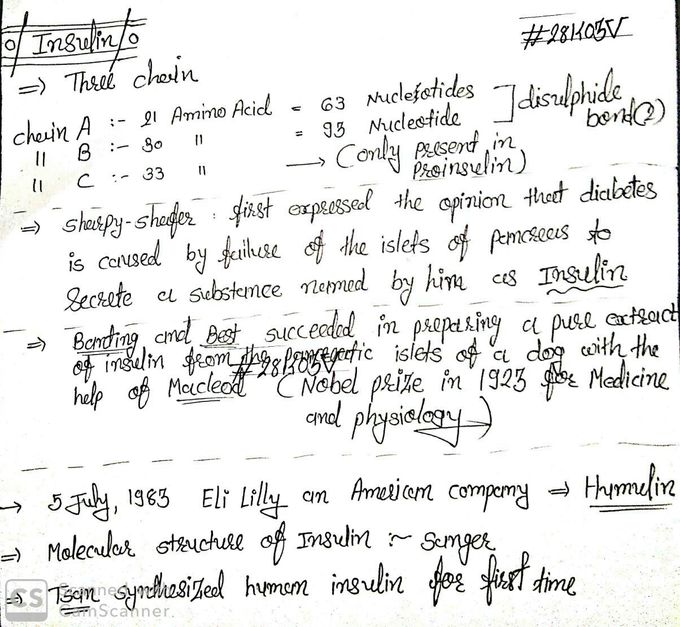 Insulin
#28K03V
⇒ Three chain
chain A :- 21 Amino Acid = 63 Nucleotides ] disulphide
'' B :- 30 '' = 93 Nucleotide bond(2)
'' C :- 33 '' → (only present in
Proinsulin)
⇒ sharpy-shafer : first expressed the opinion that diabetes
is caused by failure of the islets of pancreas to
Secrete a substance named by him as Insulin
⇒ Banting and Best succeeded in preparing a pure extract
of insulin from the pancreatic islets of a dog with the
#28K03V
help of Macleod (Nobel prize in 1923 for Medicine
and physiology)
→ 5 July, 1983 Eli Lilly an American company ⇒ Humulin
⇒ Molecular structure of Insulin :~ Sanger
⇒ Tsan synthesized human insulin for first time
CS Scanned with
CamScanner